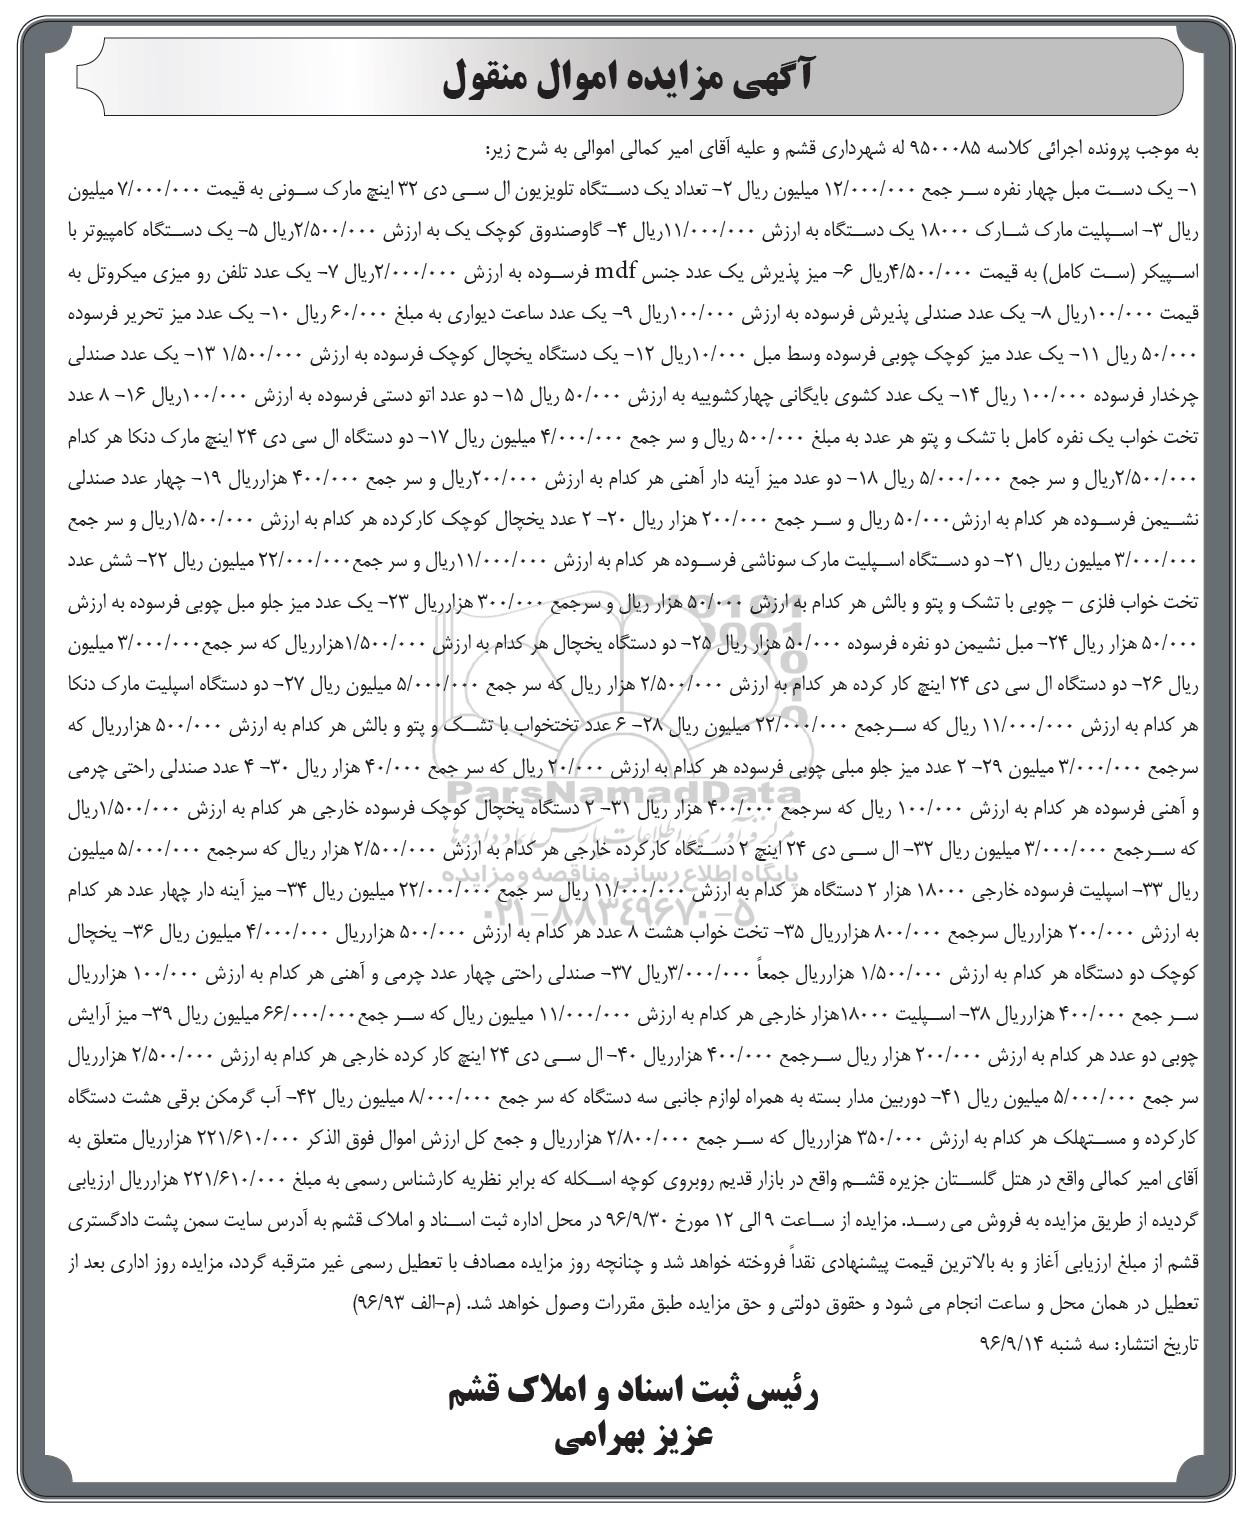 آگهی مزایده اموال منقول
به موجب پرونده اجرائی کلاسه ۹۵۰۰۰۸۵ له شهرداری قشم و علیه آقای امیر کمالی اموالی به شرح زیر:
۱- یک دست مبل چهار نفره سر جمع ۱۲/۰۰۰/۰۰۰ میلیون ریال ۲- تعداد یک دستگاه تلویزیون ال سی دی ۳۲ اینچ مارک سونی به قیمت ۷/۰۰۰/۰۰۰ میلیون
ریال ۳- اسپلیت مارک شارک ۱۸۰۰۰ یک دستگاه به ارزش ۱۱/۰۰۰/۰۰۰ریال ۴- گاوصندوق کوچک یک به ارزش ۲/۵۰۰/۰۰۰ریال ۵- یک دستگاه کامپیوتر با
اسپیکر (ست کامل) به قیمت ۴/۵۰۰/۰۰۰ریال ۶- میز پذیرش یک عدد جنس mdf فرسوده به ارزش ۲/۰۰۰/۰۰۰ریال ۷- یک عدد تلفن رو میزی میکروتل به
قیمت ۱۰۰/۰۰۰ریال ۸- یک عدد صندلی پذیرش فرسوده به ارزش ۱۰۰/۰۰۰ریال ۹- یک عدد ساعت دیواری به مبلغ ۶۰/۰۰۰ ریال ۱۰- یک عدد میز تحریر فرسوده
۵۰/۰۰۰ ریال ۱۱- یک عدد میز کوچک چوبی فرسوده وسط مبل ۱۰/۰۰۰ریال ۱۲- یک دستگاه یخچال کوچک فرسوده به ارزش ۱/۵۰۰/۰۰۰ ۱۳- یک عدد صندلی
چرخدار فرسوده ۱۰۰/۰۰۰ ریال ۱۴- یک عدد کشوی بایگانی چهارکشوییه به ارزش ۵۰/۰۰۰ ریال ۱۵- دو عدد اتو دستی فرسوده به ارزش ۱۰۰/۰۰۰ریال ۱۶- ۸ عدد
تخت خواب یک نفره کامل با تشک و پتو هر عدد به مبلغ ۵۰۰/۰۰۰ ریال و سر جمع ۴/۰۰۰/۰۰۰ میلیون ریال ۱۷- دو دستگاه ال سی دی ۲۴ اینچ مارک دنکا هر کدام
۲/۵۰۰/۰۰۰ریال و سر جمع ۵/۰۰۰/۰۰۰ ریال ۱۸- دو عدد میز آینه دار آهنی هر کدام به ارزش ۲۰۰/۰۰۰ریال و سر جمع ۴۰۰/۰۰۰ هزارریال ۱۹- چهار عدد صندلی
نشیمن فرسوده هر کدام به ارزش۵۰/۰۰۰ ریال و سر جمع ۲۰۰/۰۰۰ هزار ریال ۲۰- ۲ عدد یخچال کوچک کارکرده هر کدام به ارزش ۱/۵۰۰/۰۰۰ریال و سر جمع
۳/۰۰۰/۰۰۰ میلیون ریال ۲۱- دو دستگاه اسپلیت مارک سوناشی فرسوده هر کدام به ارزش ۱۱/۰۰۰/۰۰۰ریال و سر جمع۲۲/۰۰۰/۰۰۰ میلیون ریال ۲۲- شش عدد
تخت خواب فلزی – چوبی با تشک و پتو و بالش هر کدام به ارزش ۵۰/۰۰۰ هزار ریال و سرجمع ۳۰۰/۰۰۰ هزارریال ۲۳- یک عدد میز جلو مبل چوبی فرسوده به ارزش
۵۰/۰۰۰ هزار ریال ۲۴- مبل نشیمن دو نفره فرسوده ۵۰/۰۰۰ هزار ریال ۲۵- دو دستگاه یخچال هر کدام به ارزش ۱/۵۰۰/۰۰۰هزارریال که سر جمع۳/۰۰۰/۰۰۰ میلیون
ریال ۲۶- دو دستگاه ال سی دی ۲۴ اینچ کار کرده هر کدام به ارزش ۲/۵۰۰/۰۰۰ هزار ریال که سر جمع ۵/۰۰۰/۰۰۰ میلیون ریال ۲۷- دو دستگاه اسپلیت مارک دنکا
هر کدام به ارزش ۱۱/۰۰۰/۰۰۰ ریال که سرجمع ۲۲/۰۰۰/۰۰۰ میلیون ریال ۲۸- ۶ عدد تختخواب با تشک و پتو و بالش هر کدام به ارزش ۵۰۰/۰۰۰ هزارریال که
سرجمع ۳/۰۰۰/۰۰۰ میلیون ۲۹- ۲ عدد میز جلو مبلی چوبی فرسوده هر کدام به ارزش ۲۰/۰۰۰ ریال که سر جمع ۴۰/۰۰۰ هزار ریال ۳۰- ۴ عدد صندلی راحتی چرمی
و آهنی فرسوده هر کدام به ارزش ۱۰۰/۰۰۰ ریال که سرجمع ۴۰۰/۰۰۰ هزار ریال ۳۱- ۲ دستگاه یخچال کوچک فرسوده خارجی هر کدام به ارزش ۱/۵۰۰/۰۰۰ریال
که سرجمع ۳/۰۰۰/۰۰۰ میلیون ریال ۳۲- ال سی دی ۲۴ اینچ ۲ دستگاه کارکرده خارجی هر کدام به ارزش ۲/۵۰۰/۰۰۰ هزار ریال که سرجمع ۵/۰۰۰/۰۰۰ میلیون
ریال ۳۳- اسپلیت فرسوده خارجی ۱۸۰۰۰ هزار ۲ دستگاه هر کدام به ارزش ۱۱/۰۰۰/۰۰۰ ریال سر جمع ۲۲/۰۰۰/۰۰۰ میلیون ریال ۳۴- میز آینه دار چهار عدد هر کدام
به ارزش ۲۰۰/۰۰۰ هزارریال سرجمع ۸۰۰/۰۰۰ هزارریال ۳۵- تخت خواب هشت ۸ عدد هر کدام به ارزش ۵۰۰/۰۰۰ هزارریال ۴/۰۰۰/۰۰۰ میلیون ریال ۳۶- یخچال
کوچک دو دستگاه هر کدام به ارزش ۱/۵۰۰/۰۰۰ هزارریال جمعاً ۳/۰۰۰/۰۰۰ریال ۳۷- صندلی راحتی چهار عدد چرمی و آهنی هر کدام به ارزش ۱۰۰/۰۰۰ هزارریال
سر جمع ۴۰۰/۰۰۰ هزارریال ۳۸- اسپلیت ۱۸۰۰۰هزار خارجی هر کدام به ارزش ۱۱/۰۰۰/۰۰۰ میلیون ریال که سر جمع۶۶/۰۰۰/۰۰۰ میلیون ریال ۳۹- میز آرایش
چوبی دو عدد هر کدام به ارزش ۲۰۰/۰۰۰ هزار ریال سرجمع ۴۰۰/۰۰۰ هزارریال ۴۰- ال سی دی ۲۴ اینچ کار کرده خارجی هر کدام به ارزش ۲/۵۰۰/۰۰۰ هزارریال
سر جمع ۵/۰۰۰/۰۰۰ میلیون ریال ۴۱- دوربین مدار بسته به همراه لوازم جانبی سه دستگاه که سر جمع ۸/۰۰۰/۰۰۰ میلیون ریال ۴۲- آب گرمکن برقی هشت دستگاه
کارکرده و مستهلک هر کدام به ارزش ۳۵۰/۰۰۰ هزارریال که سر جمع ۲/۸۰۰/۰۰۰ هزارریال و جمع کل ارزش اموال فوق الذکر ۲۲۱/۶۱۰/۰۰۰ هزارریال متعلق به
آقای امیر کمالی واقع در هتل گلستان جزیره قشم واقع در بازار قدیم روبروی کوچه اسکله که برابر نظریه کارشناس رسمی به مبلغ ۲۲۱/۶۱۰/۰۰۰ هزارریال ارزیابی
گردیده از طریق مزایده به فروش می رسد. مزایده از ساعت ۹ الی ۱۲ مورخ ۹۶/۹/۳۰ در محل اداره ثبت اسناد و املاک قشم به آدرس سایت سمن پشت دادگستری
قشم از مبلغ ارزیابی آغاز و به بالاترین قیمت پیشنهادی نقداً فروخته خواهد شد و چنانچه روز مزایده مصادف با تعطیل رسمی غیر مترقبه گردد، مزایده روز اداری بعد از
تعطیل در همان محل و ساعت انجام می شود و حقوق دولتی و حق مزایده طبق مقررات وصول خواهد شد. (م-الف ۹۶/۹۳)
تاریخ انتشار: سه شنبه ۹۶/۹/۱۴
رئیس ثبت اسناد و املاک قشم
عزیز بهرامی
ParsNamadData
پایگاه اطلاع رسانی مناقصه و مزایده
۰۲۱-۸۸۳۴۹۶۷۰-۵